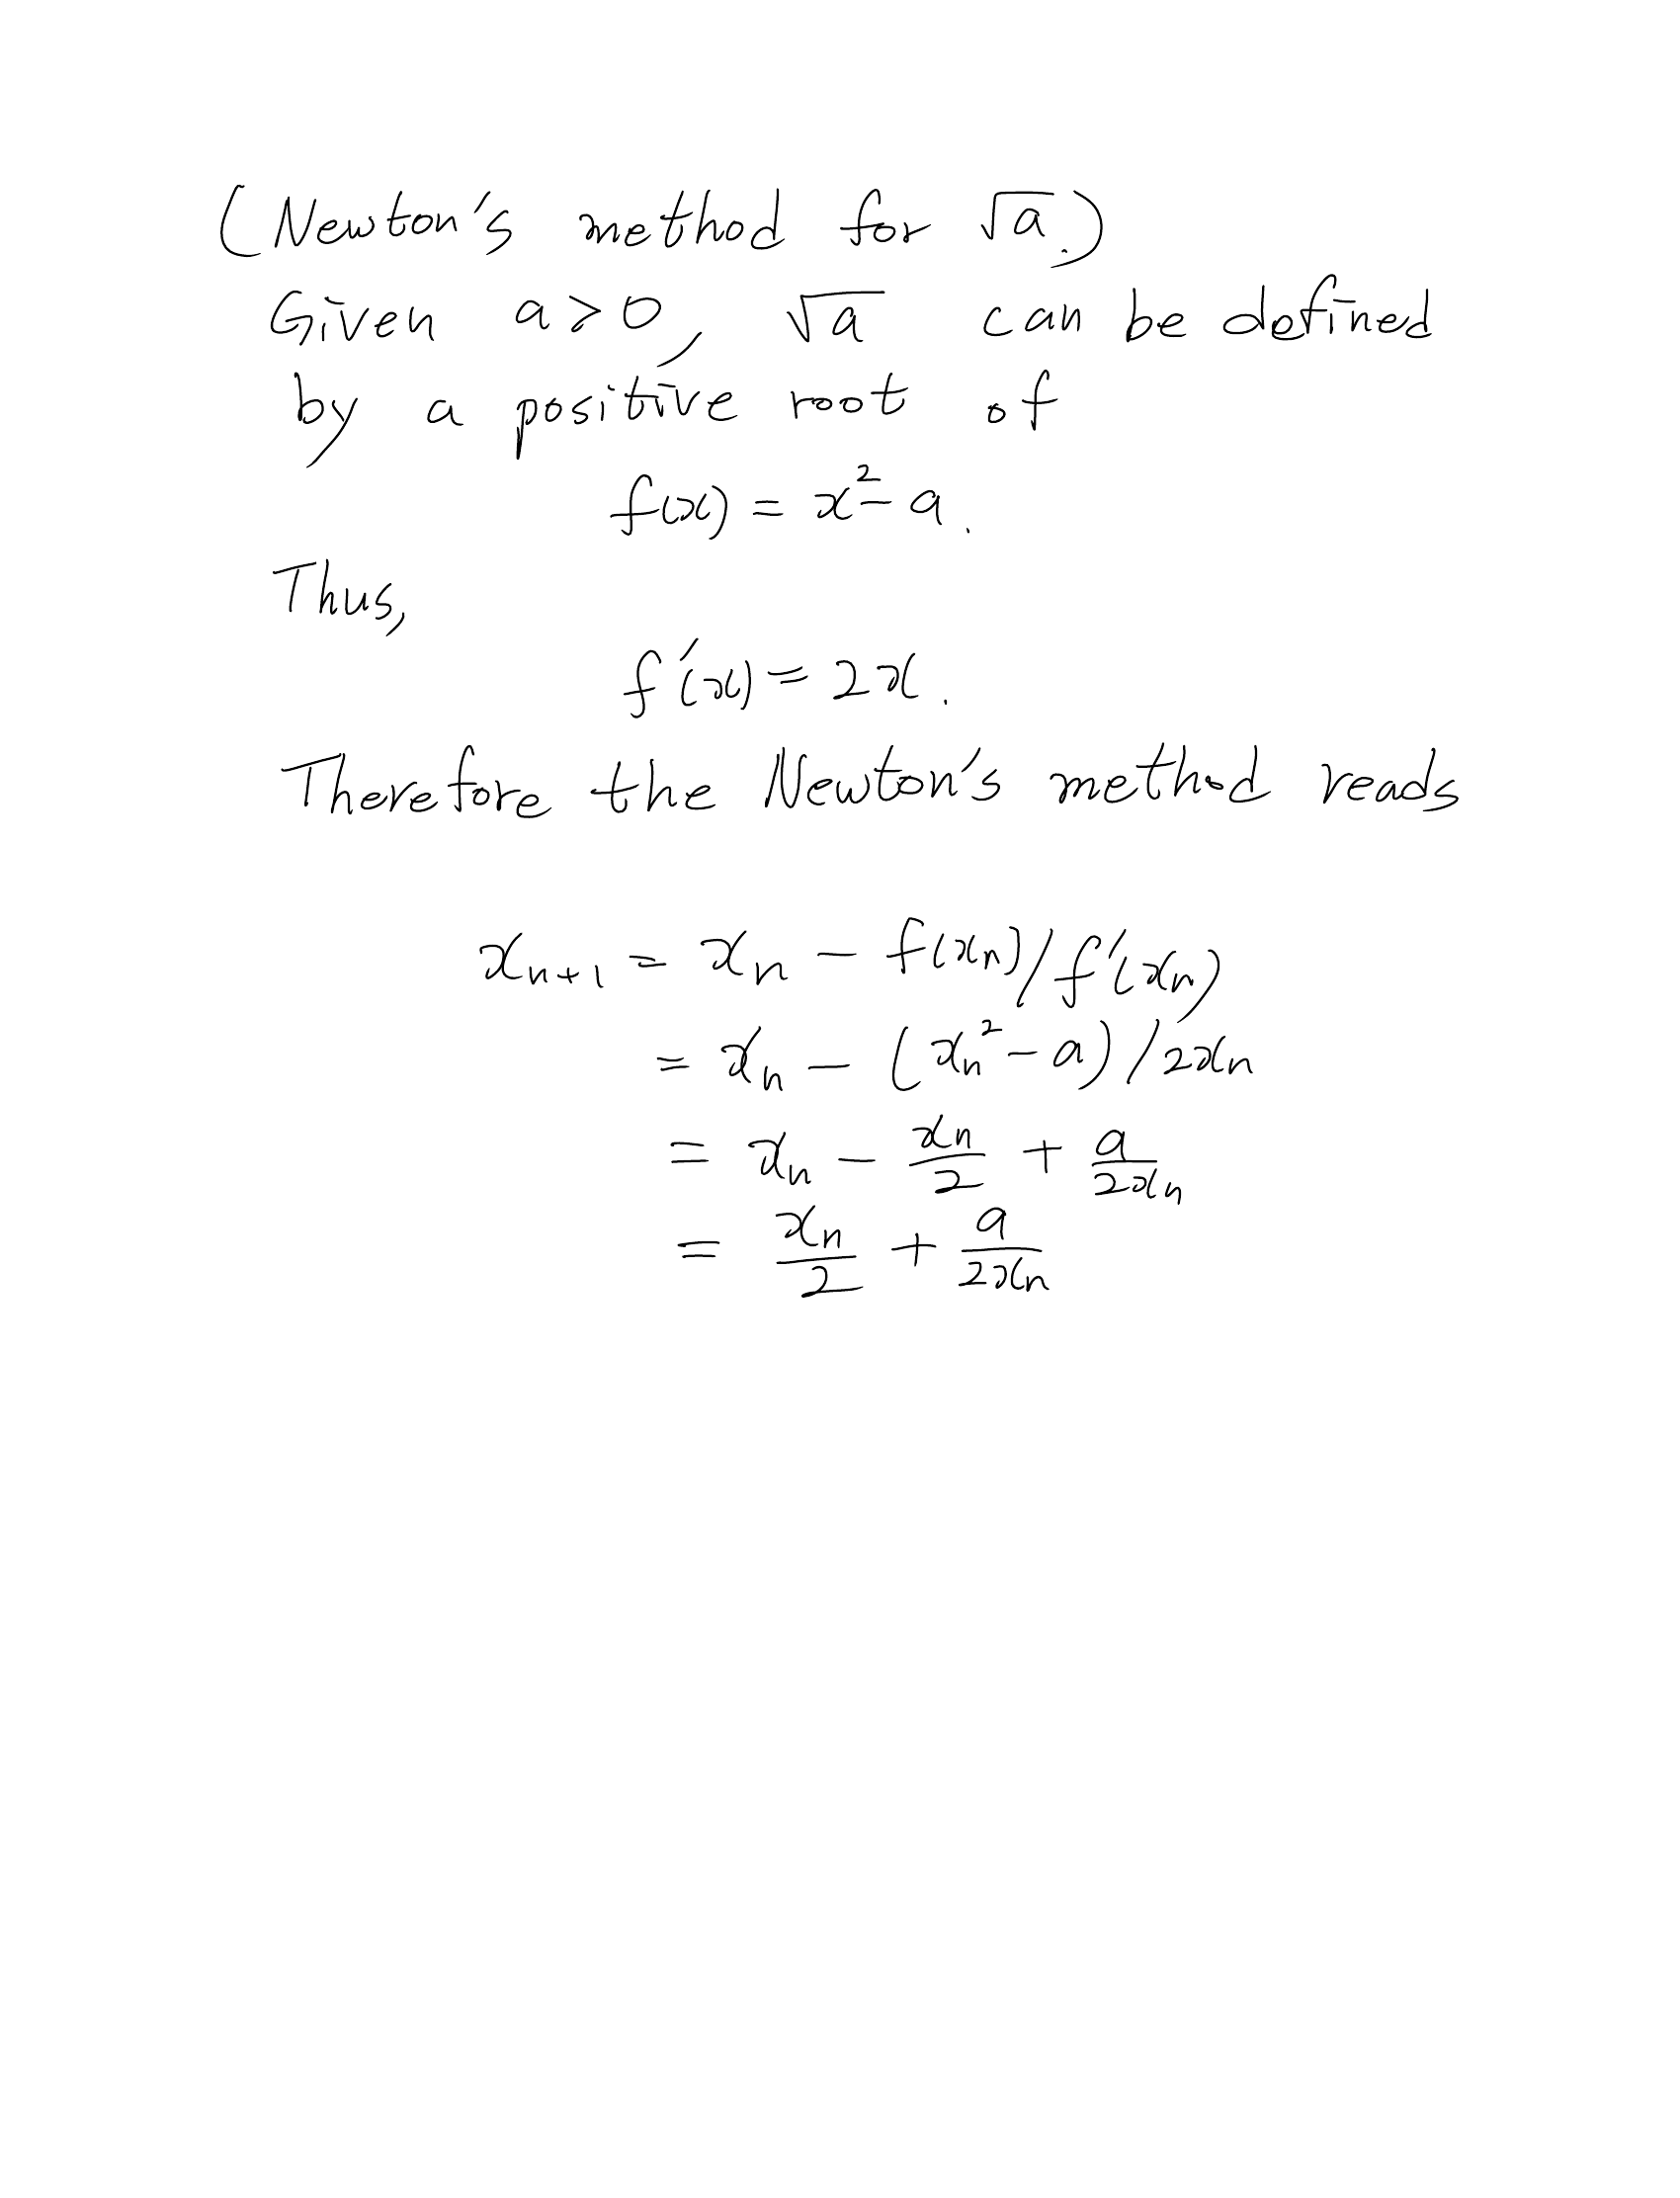 (Newton's method for √a.)
Given a>0, √a can be defined
by a positive root of
f(x) = x² - a.
Thus,
f'(x) = 2x.
Therefore the Newton's method reads
xₙ₊₁ = xₙ - f(xₙ)/f'(xₙ)
= xₙ - (xₙ² - a)/2xₙ
= xₙ - xₙ/2 + a/2xₙ
= xₙ/2 + a/2xₙ